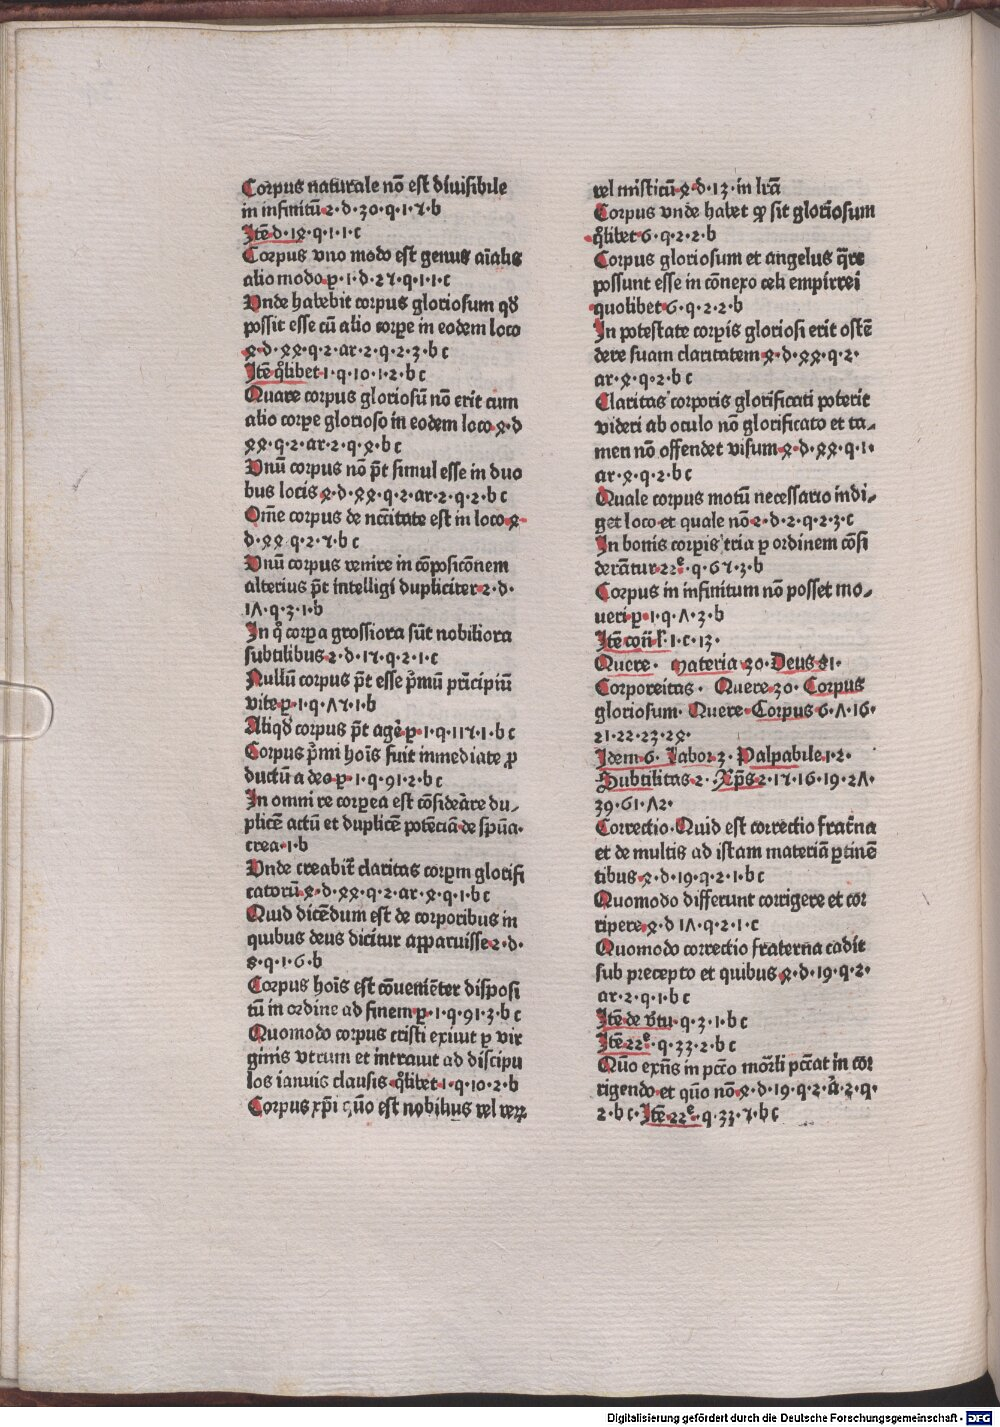 Corpus naturale nō est diuisibile
in infinitū 2·d·30·q·1·7·b
Itē d·18·q·1·1·c
Corpus vno modo est genus aīalis
alio modo p·1·d·27·q·1·1·c
Vnde habebit corpus gloriosum qđ
possit esse cū alio corpe in eodem loco
4·d·44·q·2·ar·2·q·2·3·b c
Itē qͦlibet 1·q·10·1·2·b c
Quare corpus gloriosū nō erit cum
alio corpe glorioso in eodem loco 4·d
44·q·2·ar·2·q·4·b c
Vnū corpus nō pt̄ simul esse in duo
bus locis 4·d·44·q·2·ar·2·q·2·b c
Om̄e corpus de nc̄citate est in loco 4·
d·44·q·2·7·b c
Vnū corpus venire in cōposicōnem
alterius pt̄ intelligi dupliciter 2·d·
1Λ·q·3·1·b
In qͦ corpora grossiora sūt nobiliora
subtilibus 2·d·17·q·2·1·c
Nullū corpus pt̄ esse pͥmū prīcipiū
vite p·1·q·Λ7·1·b
Aliqđ corpus pt̄ agē p·1·q·117·1·b c
Corpus pͥmi hoīs fuit immediate ꝓ
ductū a deo p·1·q·91·2·b c
In omni re corpea est cōsideāre du-
plicē actū et duplicē potēciā de sp̄ūa·
crea·1·b
Vnde creabit̄ claritas corpm glorifi
catorū 4·d·44·q·2·ar·4·q·1·b c
Quid dicēdum est de corporibus in
quibus deus dicitur apparuisse 2·d·
8·q·1·6·b
Corpus hoīs est cōueniēter disposi
tū in ordine ad finem p·1·q·91·3·b c
Quomodo corpus cristi exiuit p vir
ginis vtrum et intrauit ad discipu
los ianuis clausis qͦlibet 1·q·10·2·b
Corpus xp̄i quō est nobilius vel verꝝ
vel misticū 4·d·13·in lr̄a
Corpus vnde habet ꝙ sit gloriosum
qͦlibet 6·q·2·2·b
Corpus gloriosum et angelus q̄re
possunt esse in cōnexo celi empirrei
quolibet 6·q·2·2·b
In potestate corpis gloriosi erit ostē
dere suam claritatem 4·d·44·q·2·
ar·4·q·2·b c
Claritas corporis glorificati poterit
videri ab oculo nō glorificato et ta-
men nō offendet visum 4·d·44·q·1·
ar·4·q·2·b c
Quale corpus motū necessario indi-
get loco et quale nō 2·d·2·q·2·3·c
In bonis corpis tria p ordinem cōsi
derātur 22ͤ·q·67·3·b
Corpus in infinitum nō posset mo-
ueri p·1·q·Λ·3·b
Itē con̄ l·1·c·13·
Quere· materia 30· Deus 81·
Corporeitas· Quere 30· Corpus
gloriosum· Quere Corpus 6·Λ·16·
21·22·23·24·
Idem 6· Labor 3· Palpabile 1·2·
Subtilitas 2· Xp̄s 2·17·16·19·2Λ·
39·61·Λ2·
Correctio· Quid est correctio frat̄na
et de multis ad istam materiā ꝑtinē
tibus 4·d·19·q·2·1·b c
Quomodo differunt corrigere et cor
ripere 4·d 1Λ·q·2·1·c
Quomodo correctio fraterna cadit
sub precepto et quibus 4·d·19·q·2·
ar·2·q·1·b c
Itē de v̄tu·q·3·1·b c
Itē 22ͤ·q·33·2·b c
Quō exn̄s in pctō mōrli pctāt in cor
rigendo et quō nō 4·d·19·q·2·ar·2·q·
2·b c· Itē 22ͤ·q·33·7·b c
Digitalisierung gefördert durch die Deutsche Forschungsgemeinschaft - DFG